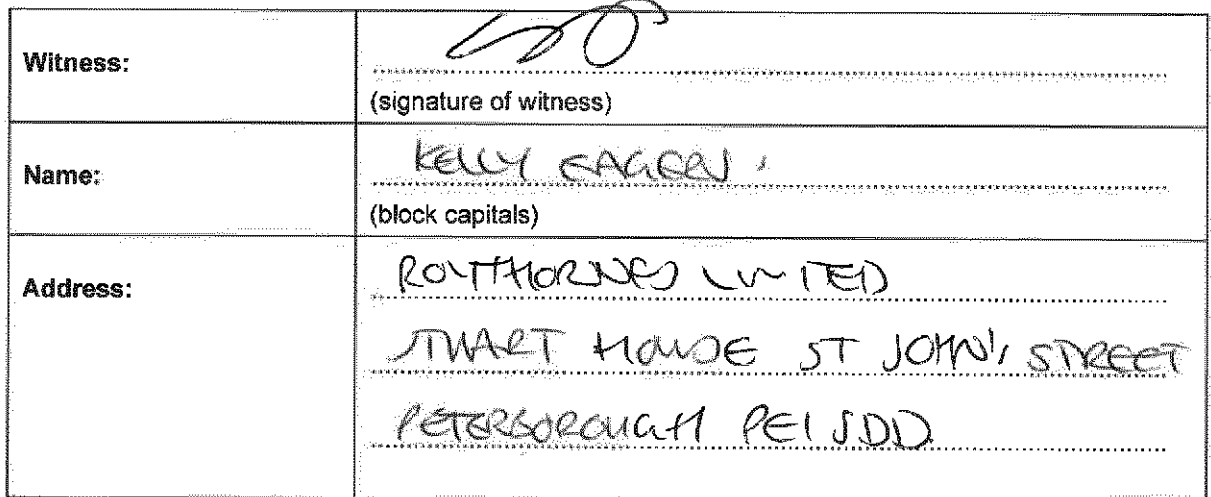 Witness:
(signature of witness)
Name: KELLY EAGEN
(block capitals)
Address: ROYTHORNES LIMITED
STUART HOUSE ST JOHN'S STREET
PETERBOROUGH PE1 5DD